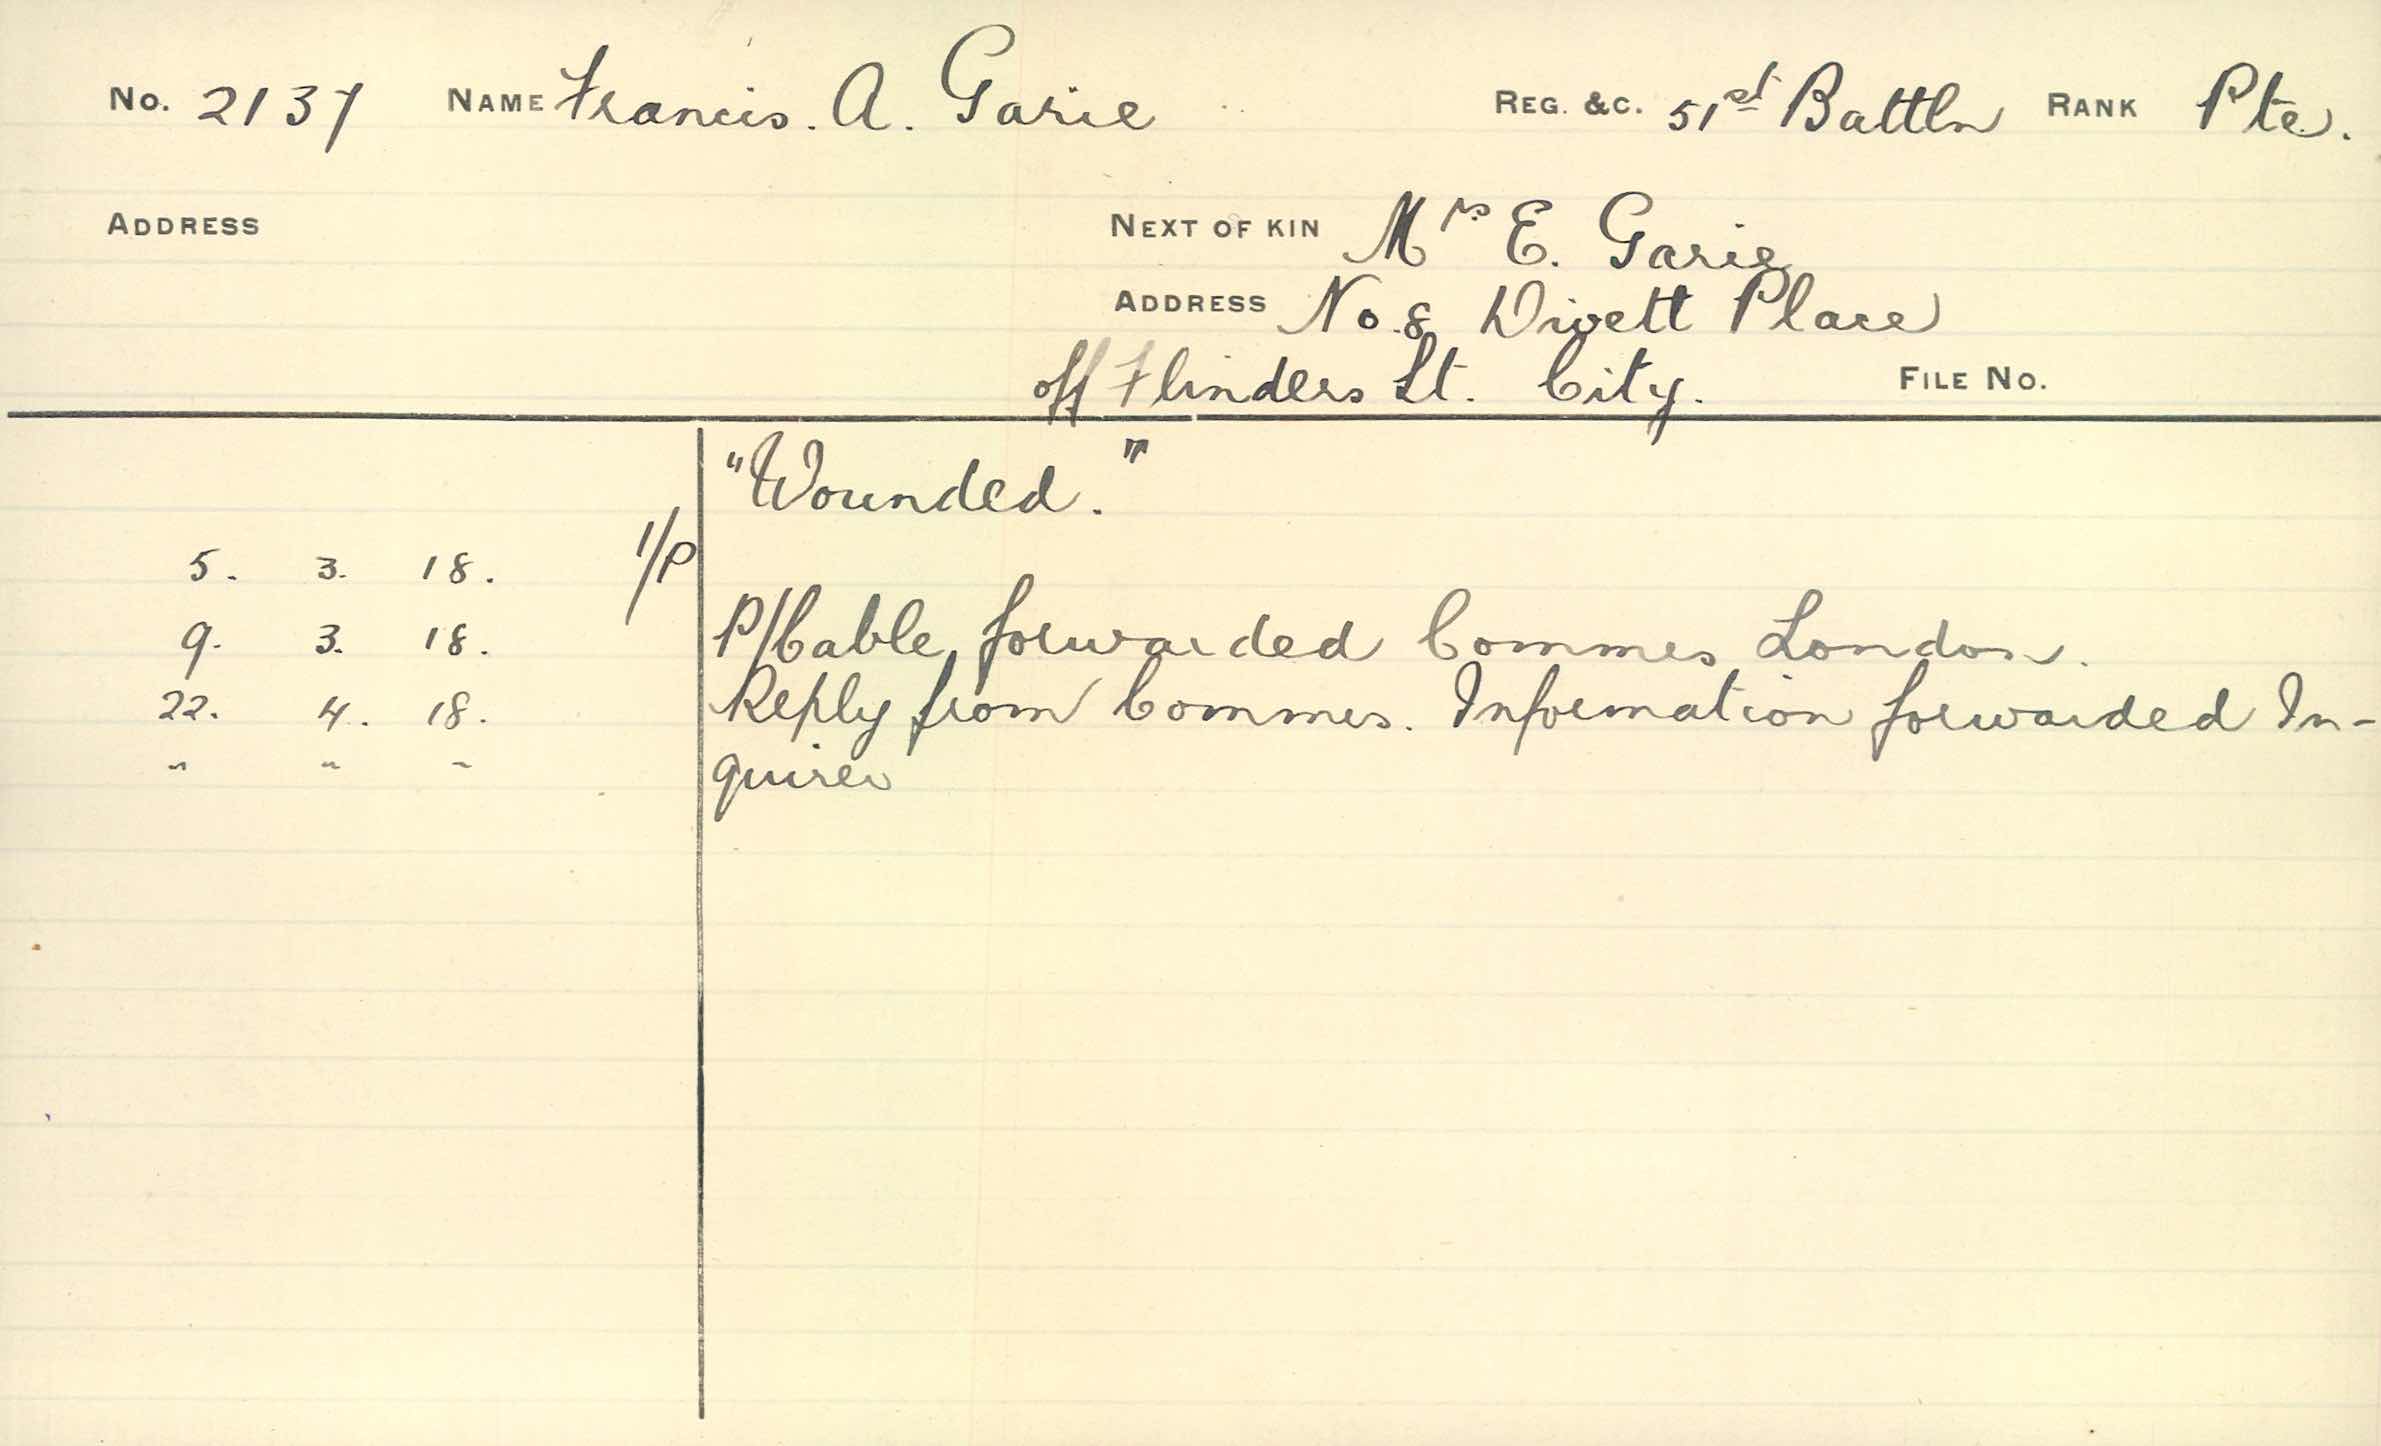 No. 2137 NAME Francis. A. Garie REG. &C. 51st Battln RANK Pte.
ADDRESS NEXT OF KIN Mrs E. Garie
ADDRESS No. 8 Divett Place
off Flinders St. City. FILE No.
"Wounded."
5. 3. 18. 1/P
9. 3. 18. P/Cable forwarded Commes London.
22. 4. 18. Reply from Commes. Information forwarded In-
" " " quirer